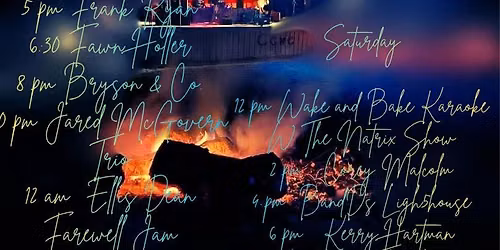 5 pm Frank Ryan
6:30 Fawn Holler
8 pm Bryson & Co.
0 pm Jared McGovern
Trio
12 am Ellis Dean
Farewell Jam
Saturday
12 pm Wake and Bake Karaoke
W The Natrix Show
2 pm Malcolm
4 pm BandD's Ligh5house
6 pm Kerry Hartman